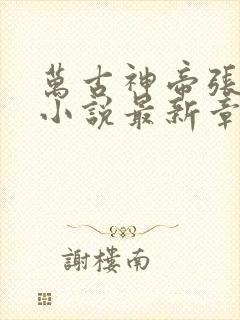 萬古神帝張
小說最新章
謝樓南